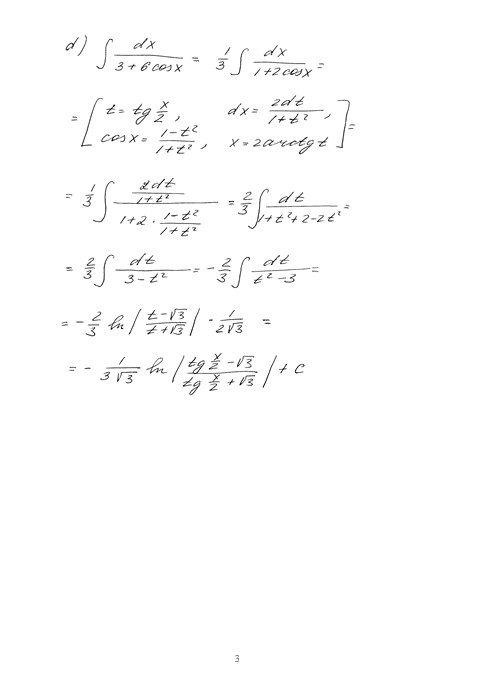 d) ∫ dx / (3 + 6cosx) = 1/3 ∫ dx / (1+2cosx) =
= [ t = tg x/2, dx = 2dt / (1+t²),
cosx = (1-t²) / (1+t²), x = 2arctg t ] =
= 1/3 ∫ (2dt / (1+t²)) / (1+2 · (1-t²) / (1+t²)) = 2/3 ∫ dt / (1+t²+2-2t²) =
= 2/3 ∫ dt / (3-t²) = - 2/3 ∫ dt / (t²-3) =
= - 2/3 ln | (t-√3) / (t+√3) | · 1 / (2√3) =
= - 1 / (3√3) ln | (tg x/2 - √3) / (tg x/2 + √3) | + C
3